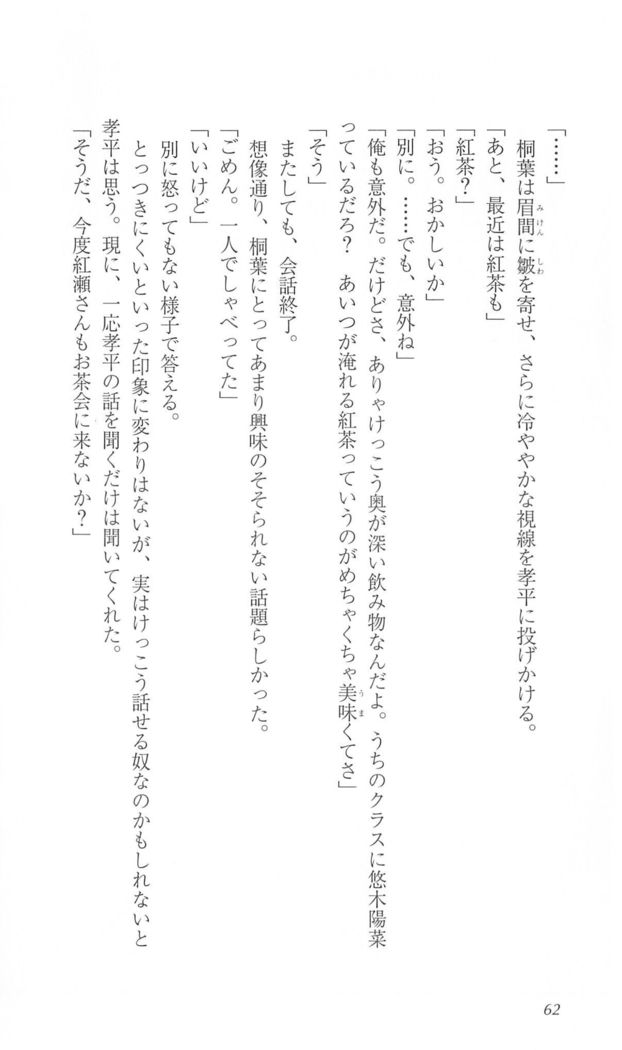 「……」
桐葉は眉間に皺を寄せ、さらに冷ややかな視線を孝平に投げかける。
「あと、最近は紅茶も」
「紅茶？」
「おう。おかしいか」
「別に。……でも、意外ね」
「俺も意外だ。だけどさ、ありゃけっこう奥が深い飲み物なんだよ。うちのクラスに悠木陽菜
っているだろ？　あいつが淹れる紅茶っていうのがめちゃくちゃ美味くてさ」
「そう」
またしても、会話終了。
想像通り、桐葉にとってあまり興味のそそられない話題らしかった。
「ごめん。一人でしゃべってた」
「いいけど」
別に怒ってもない様子で答える。
とっつきにくいといった印象に変わりはないが、実はけっこう話せる奴なのかもしれないと
孝平は思う。現に、一応孝平の話を聞くだけは聞いてくれた。
「そうだ、今度紅瀬さんもお茶会に来ないか？」
62